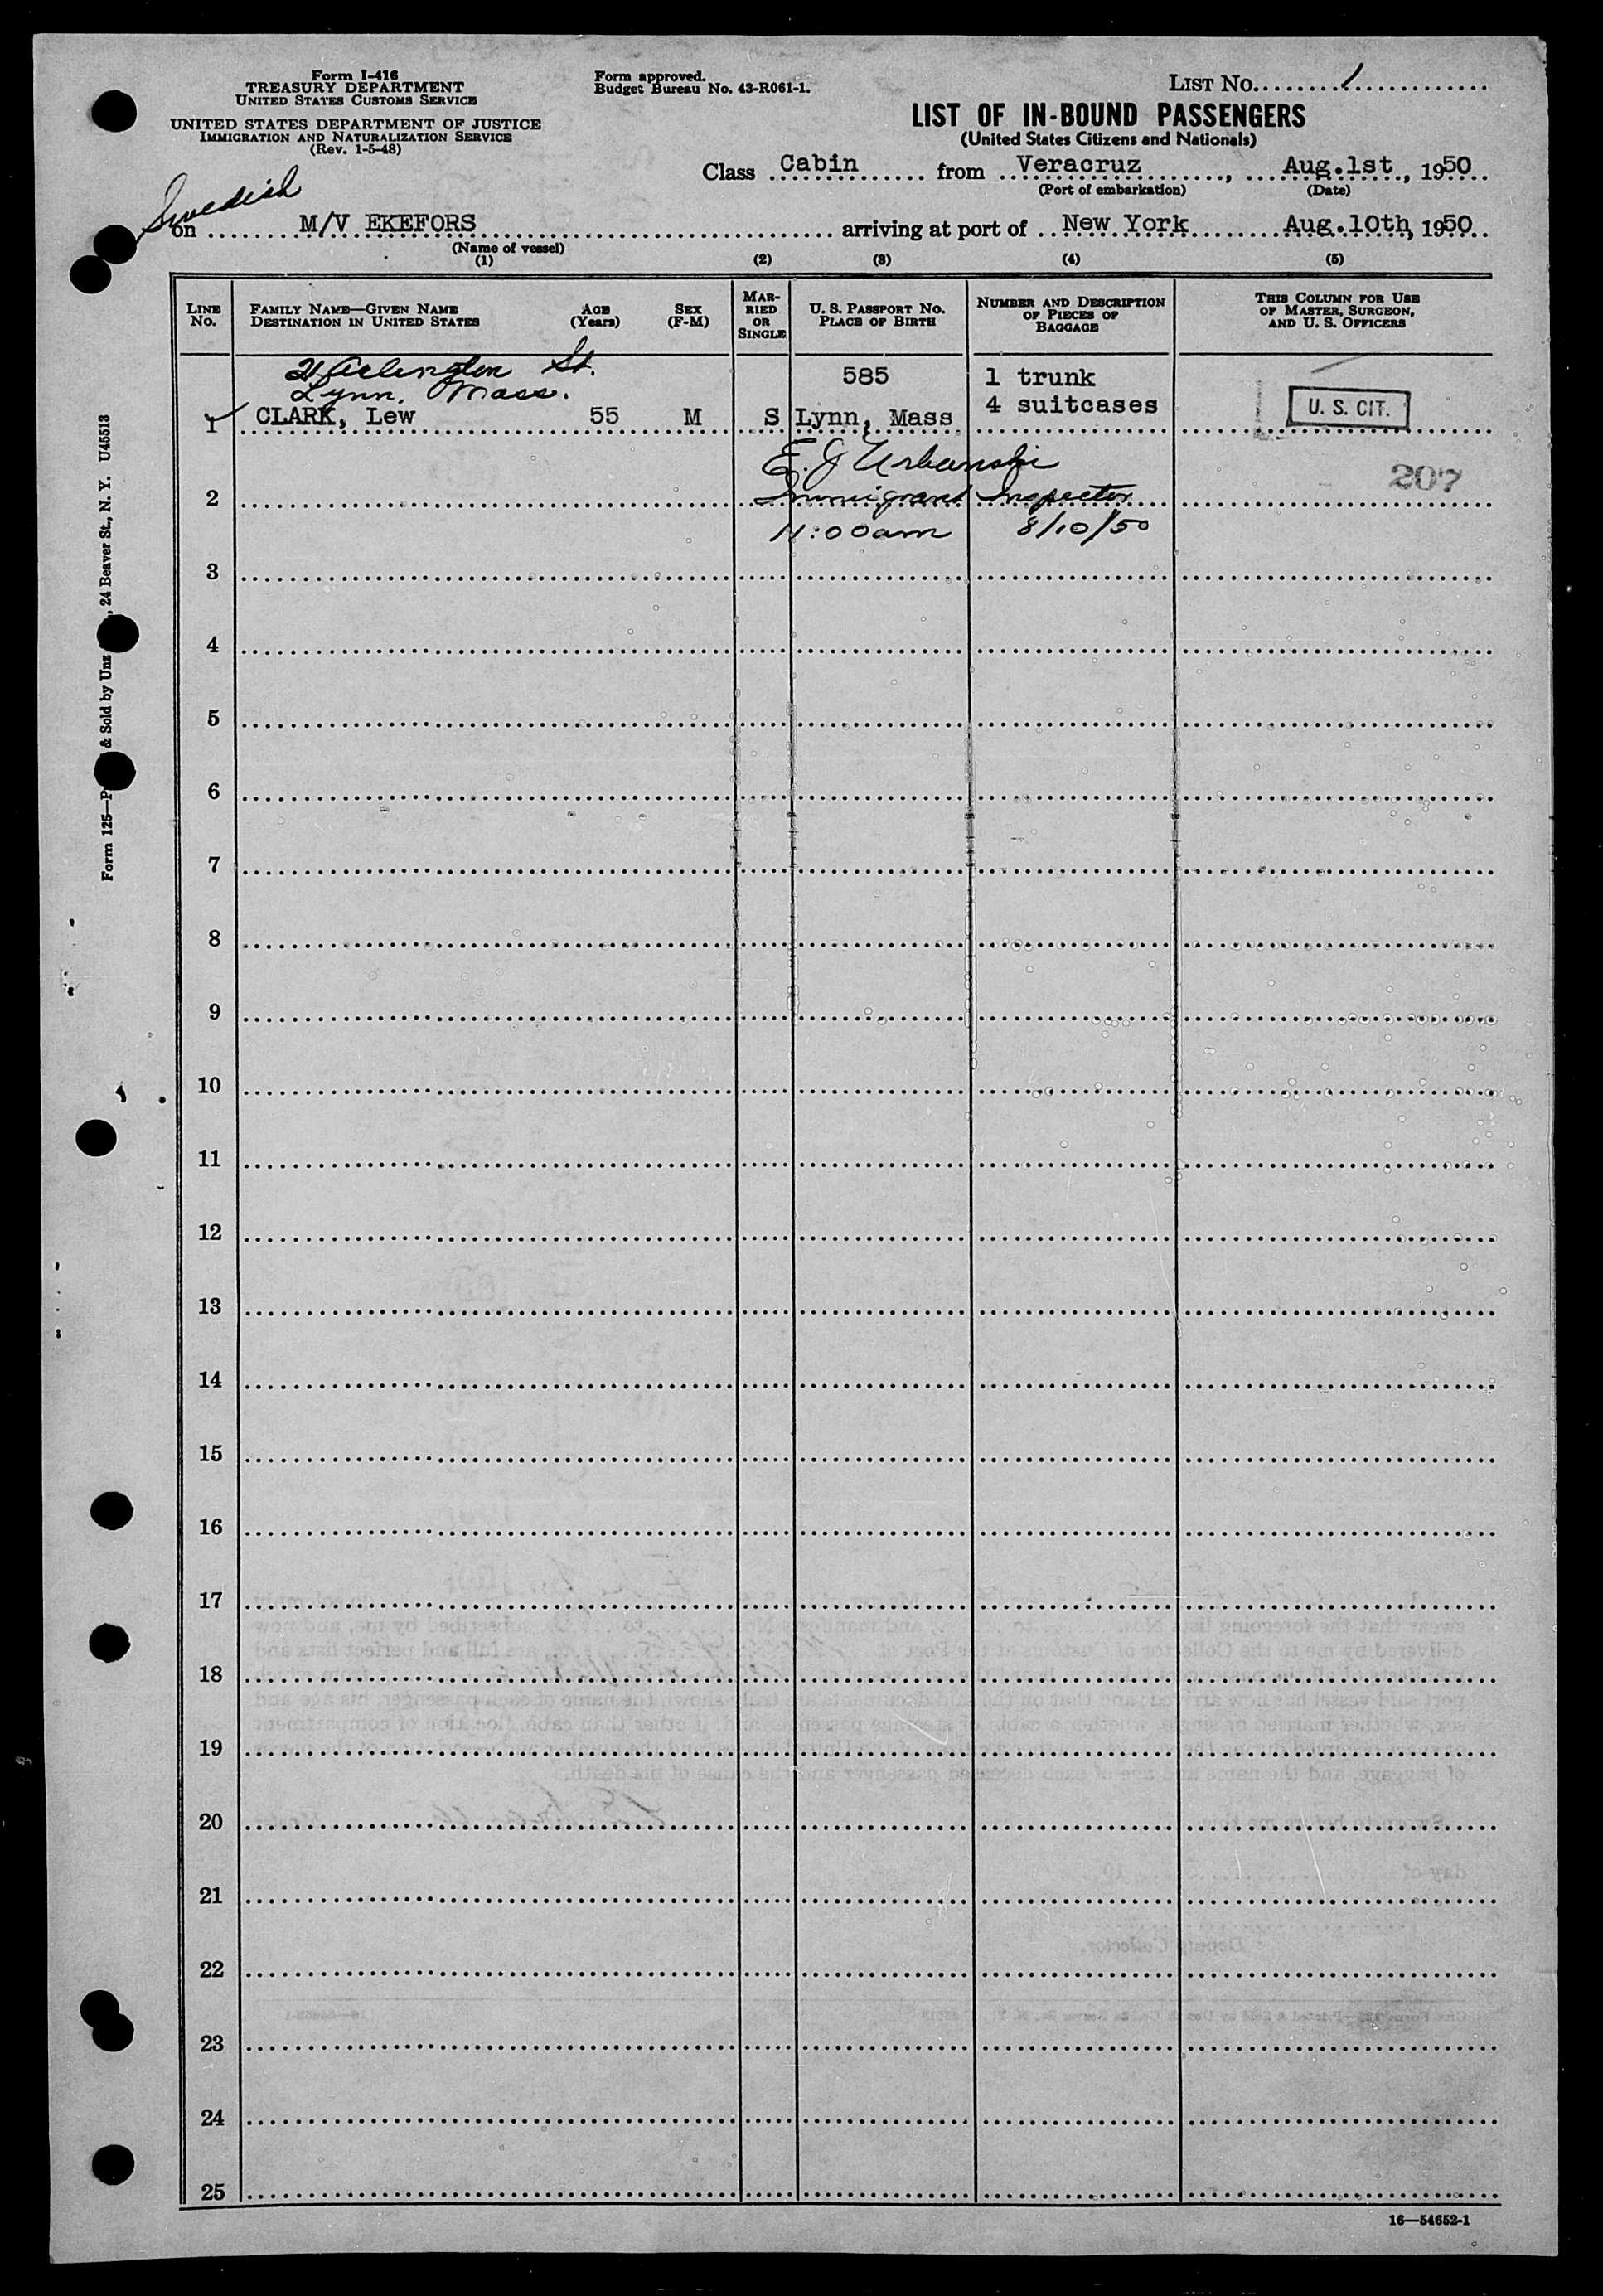 Form I-416
TREASURY DEPARTMENT
UNITED STATES CUSTOMS SERVICE
UNITED STATES DEPARTMENT OF JUSTICE
IMMIGRATION AND NATURALIZATION SERVICE
(Rev. 1-5-48)
Form approved.
Budget Bureau No. 43-R061-1.
LIST NO. 1
LIST OF IN-BOUND PASSENGERS
(United States Citizens and Nationals)
Class Cabin from Veracruz, Aug.1st, 1950
(Port of embarkation) (Date)
Swedish
on M/V EKEFORS arriving at port of New York Aug.10th, 1950
(Name of vessel)
(1) (2) (3) (4) (5)
LINE NO.
FAMILY NAME—GIVEN NAME AGE SEX
DESTINATION IN UNITED STATES (Years) (F-M)
MARRIED OR SINGLE
U. S. PASSPORT NO.
PLACE OF BIRTH
NUMBER AND DESCRIPTION
OF PIECES OF
BAGGAGE
THIS COLUMN FOR USE
OF MASTER, SURGEON,
AND U. S. OFFICERS
Arlington St.
Lynn, Mass.
585 1 trunk
4 suitcases
1 CLARK, Lew 55 M S Lynn, Mass U. S. CIT.
E. J Urbanski
207
2 Immigrant Inspector
11:00am 8/10/50
3
4
5
6
7
8
9
10
11
12
13
14
15
16
17
18
19
20
21
22
23
24
25
16—54652-1
Form 125—P & Sold by Unz , 24 Beaver St., N. Y. U45513